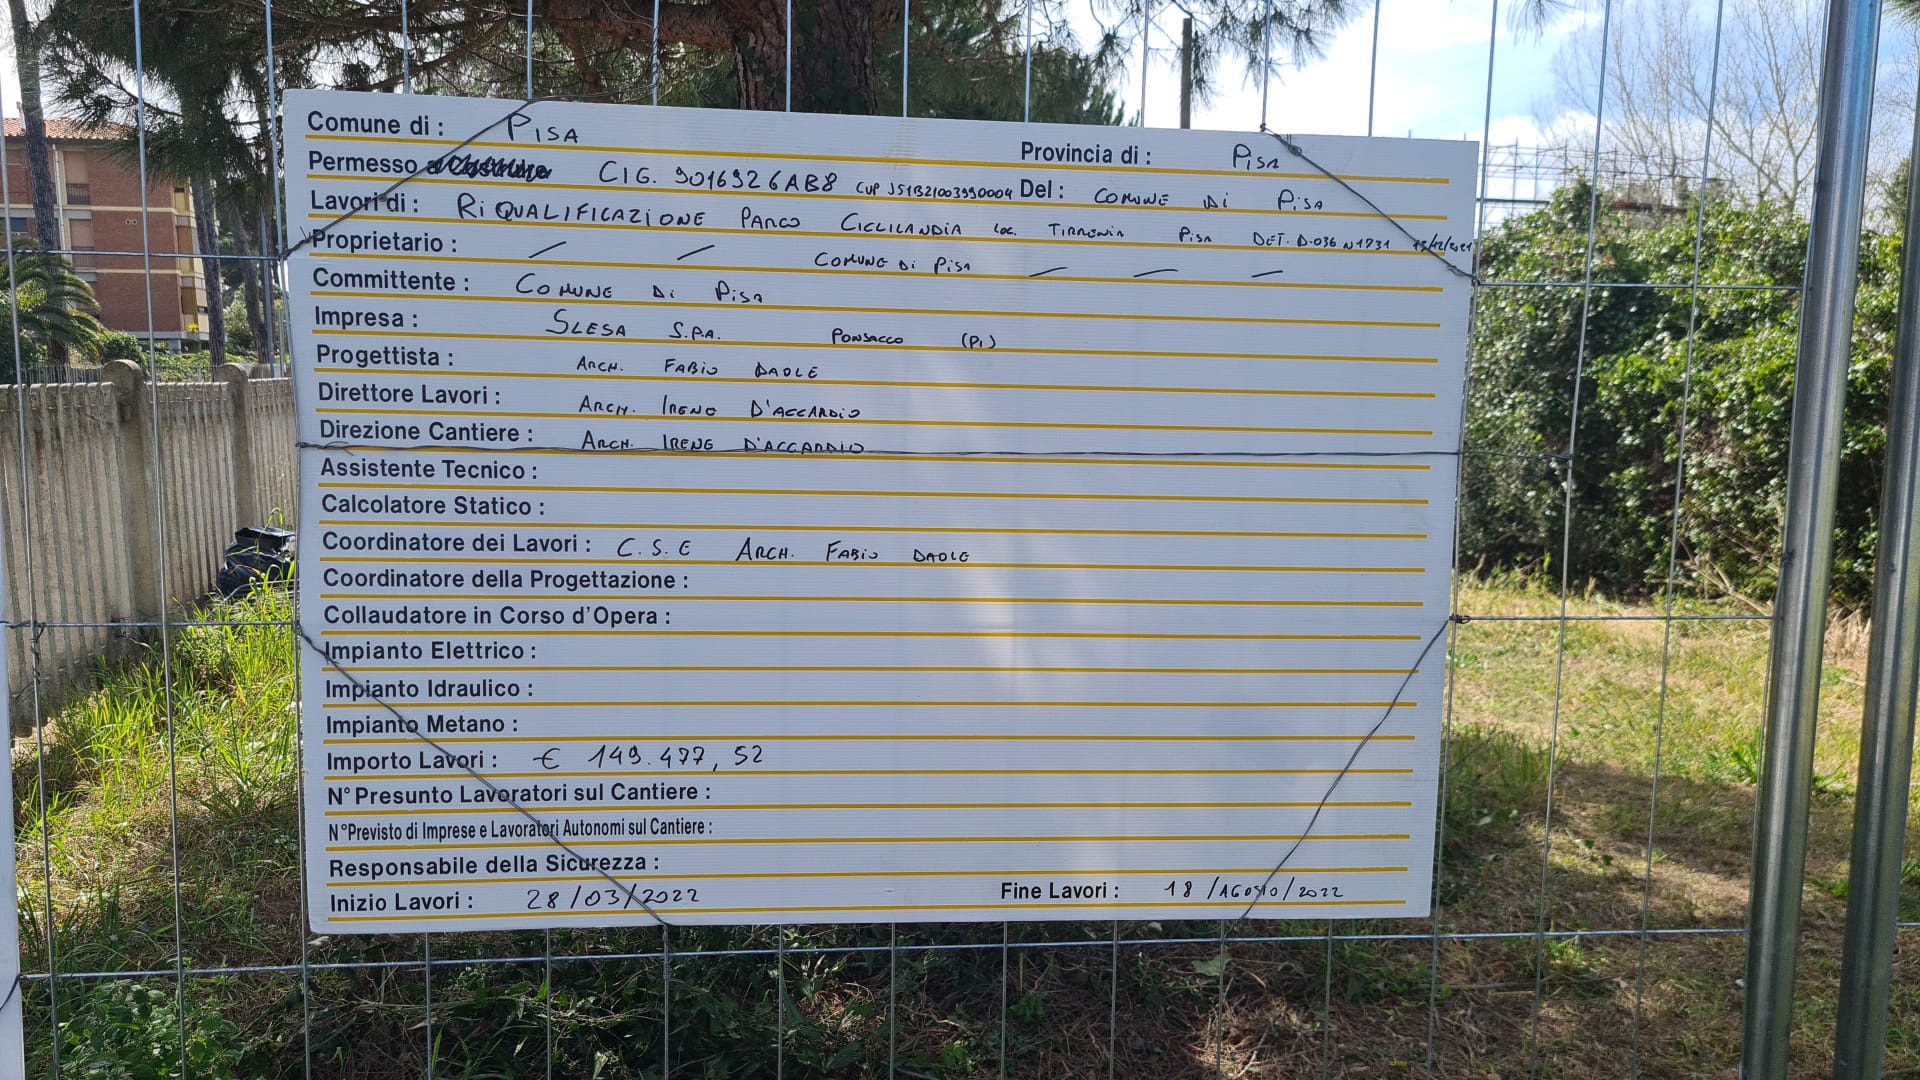 Comune di : PISA Provincia di : PISA
Permesso a CIG. 9016926AB8 CUP J51B21003990004 Del : COMUNE DI PISA
Lavori di : RIQUALIFICAZIONE PARCO CICLILANDIA LOC. TIRRENIA PISA DET. D-036 N1731 13/12/2021
Proprietario : — — COMUNE DI PISA — — —
Committente : COMUNE DI PISA
Impresa : SLESA S.P.A. PONSACCO (PI)
Progettista : ARCH. FABIO DAOLE
Direttore Lavori : ARCH. IRENE D'ACCARDIO
Direzione Cantiere : ARCH. IRENE D'ACCARDIO
Assistente Tecnico :
Calcolatore Statico :
Coordinatore dei Lavori : C.S.E ARCH. FABIO DAOLE
Coordinatore della Progettazione :
Collaudatore in Corso d'Opera :
Impianto Elettrico :
Impianto Idraulico :
Impianto Metano :
Importo Lavori : € 149.477,52
N° Presunto Lavoratori sul Cantiere :
N° Previsto di Imprese e Lavoratori Autonomi sul Cantiere :
Responsabile della Sicurezza :
Inizio Lavori : 28/03/2022 Fine Lavori : 18/AGOSTO/2022